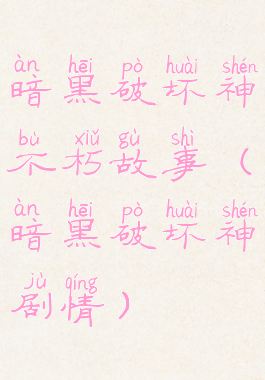 àn hēi pò huài shén
暗黑破坏神
bù xiǔ gù shì
不朽故事（
àn hēi pò huài shén
暗黑破坏神
jù qíng
剧情）